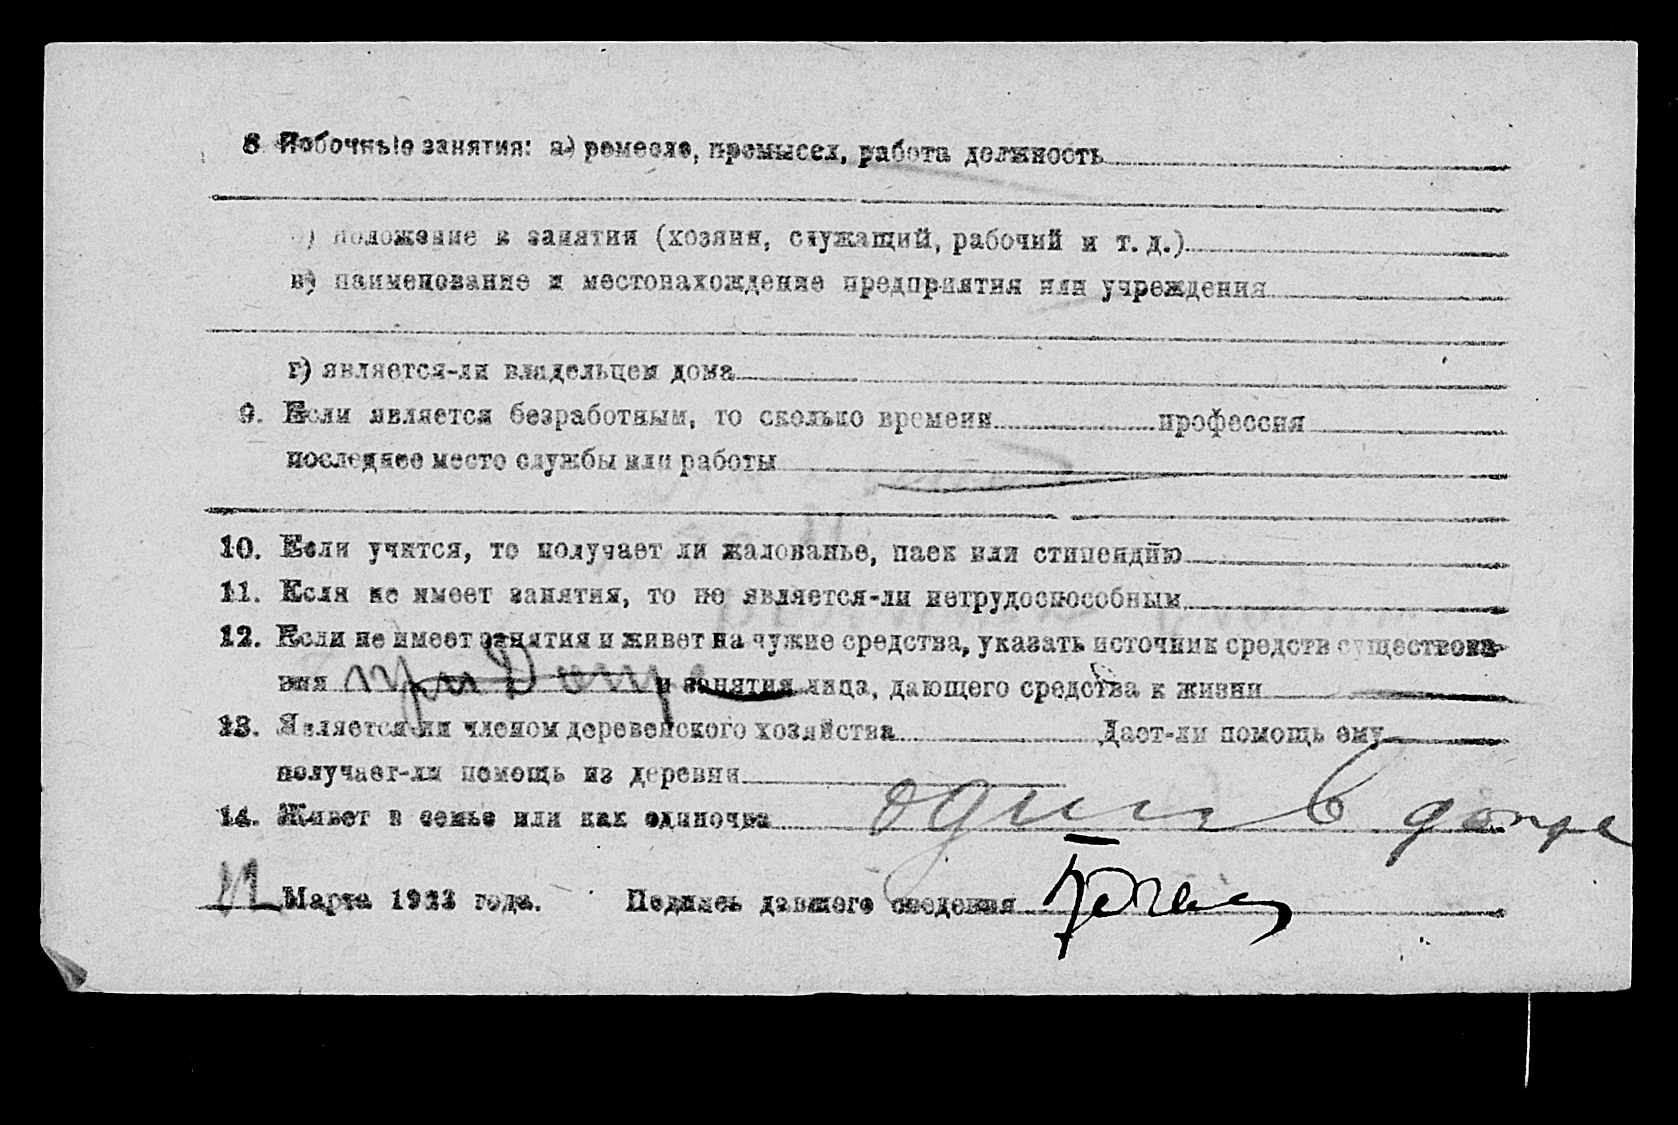 8 Побочные занятия: а) ремесло, промысел, работа должность
б) положение в занятии (хозяин, служащий, рабочий и т. д.)
в) наименование и местонахождение предприятия или учреждения
г) является-ли владельцем дома
9. Если является безработным, то сколько времени профессия
последнее место службы или работы
10. Если учится, то получает ли жалованье, паек или стипендию
11. Если не имеет занятия, то не является-ли нетрудоспособным
12. Если не имеет занятия и живет на чужие средства, указать источник средств существова-
ния при и занятия лица, дающего средства к жизни
13. Является ли членом деревенского хозяйства Дает-ли помощь ему
получает-ли помощь из деревни
14. Живет в семье или как одиночка один в доме
11 Марта 1923 года. Подпись давшего сведения